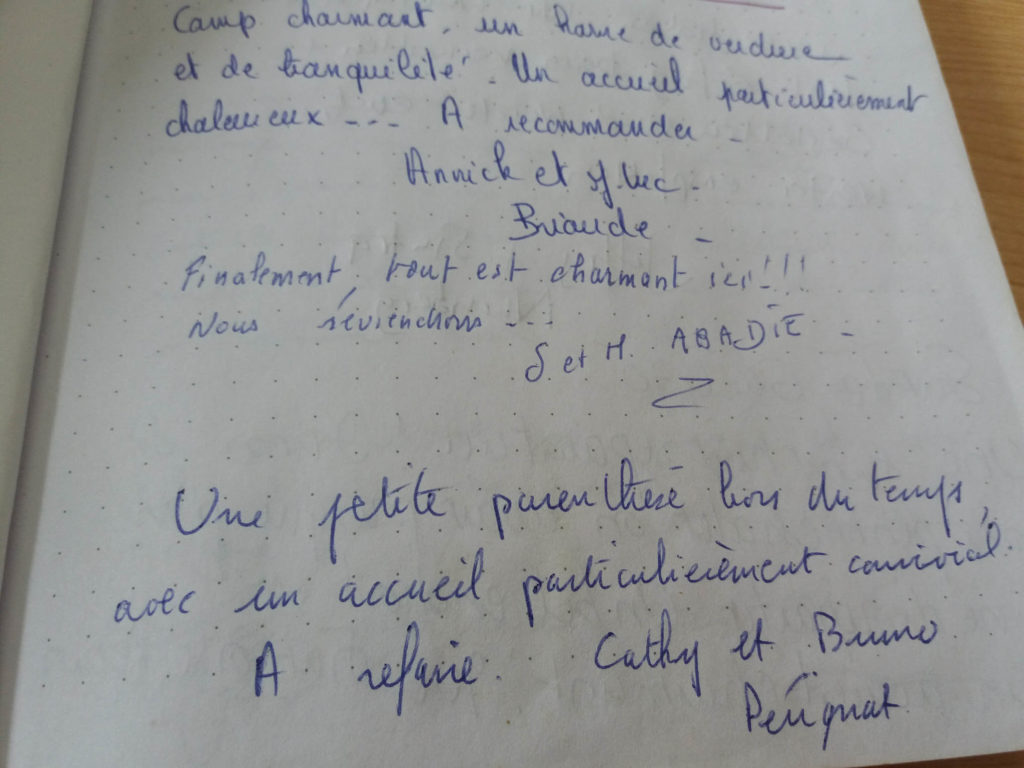 Camp charmant, un havre de verdure
et de tranquilité. Un accueil particulièrement
chaleureux --- A recommander -
Annick et J. Luc -
Briaude -
Finalement, tout est charmant ici !!!
Nous réviendrons ---
S et H. ABADIE -
Une petite parenthèse hors du temps,
avec un accueil particulièrement convivial.
A refaire. Cathy et Bruno
Perignat